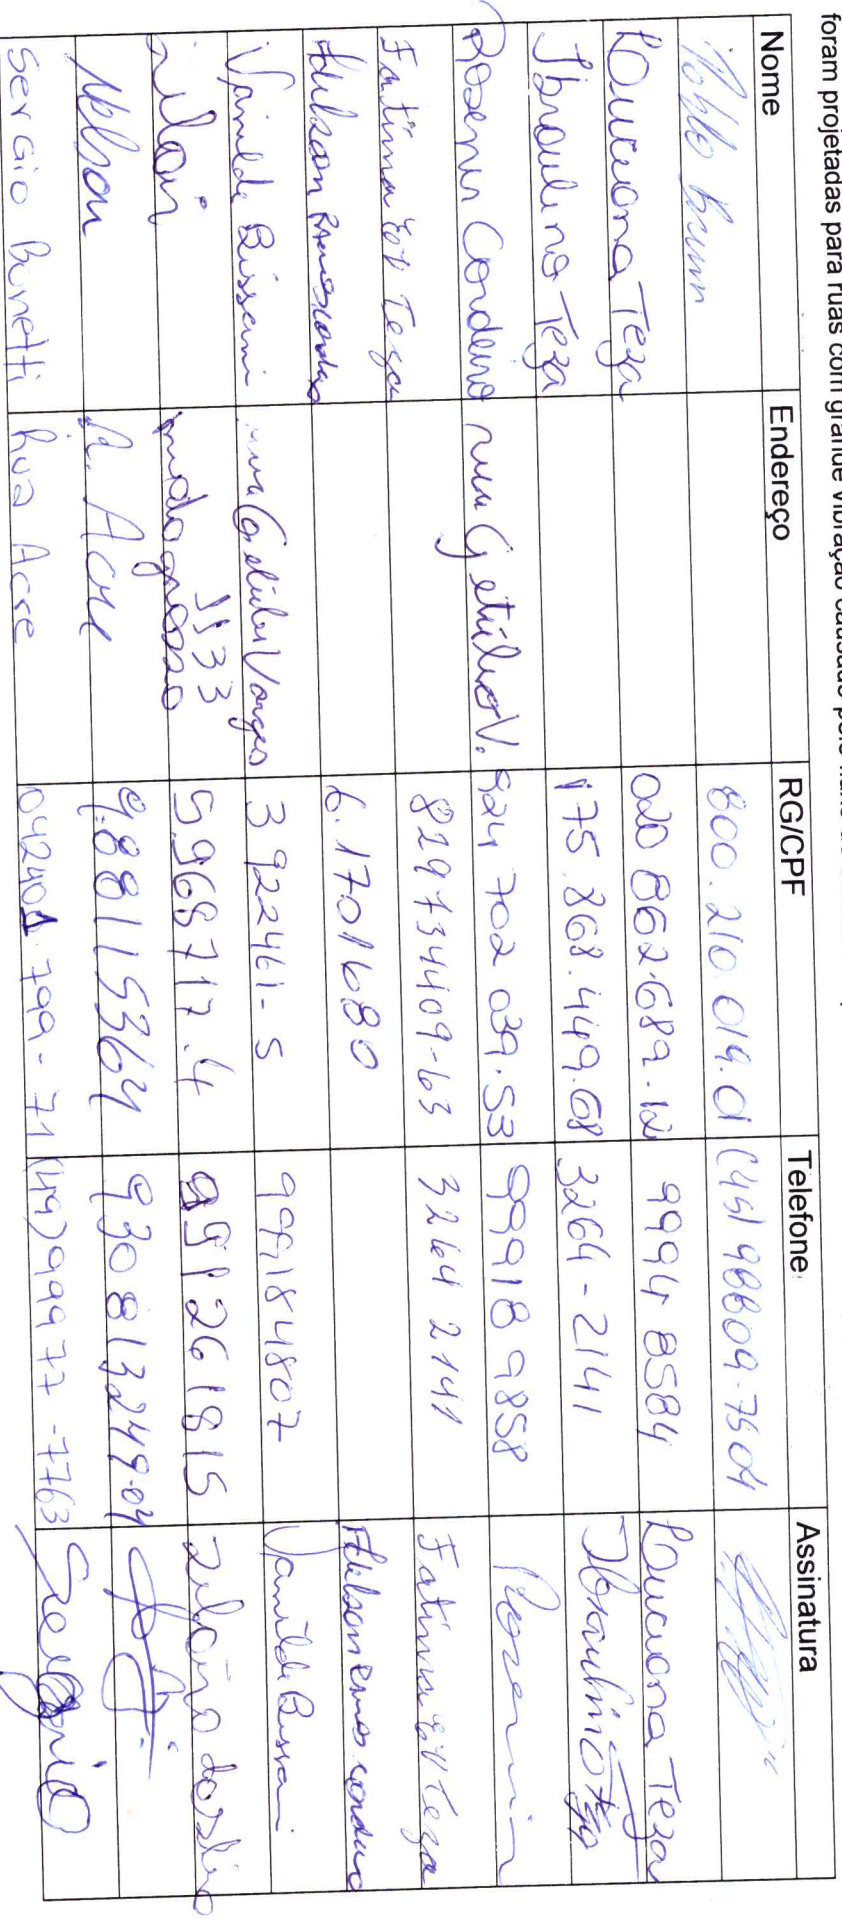 foram projetadas para ruas com grande vibração causado pelo
Nome Endereço RG/CPF Telefone Assinatura
Pablo Brunn 800.210.019.01 (45) 98809-7504
Luciana Teza 020 862.689.12 9994 8584 Luciana Teza
Ibraulino Teza 175.868.449.68 3264-2141 Ibraulino Teza
Rosenir Cordeiro rua Getúlio V. 924 702 039.53 99918 9858 Rosenir
Fatima Teza 829734409-63 3264 2141 Fatima Teza
Adelson 6.1701680 Adelson
Vanilde Bissani rua Getulio Vargas 3922461-5 999184807 Vanilde Bissani
mato grosso 1133 5968717.4 991261815
Nelson R. Acre 9.88115364 930813249-04
Sergio Bunetti Rua Acre 042401.799-71 (49) 99977-7763 Sergio